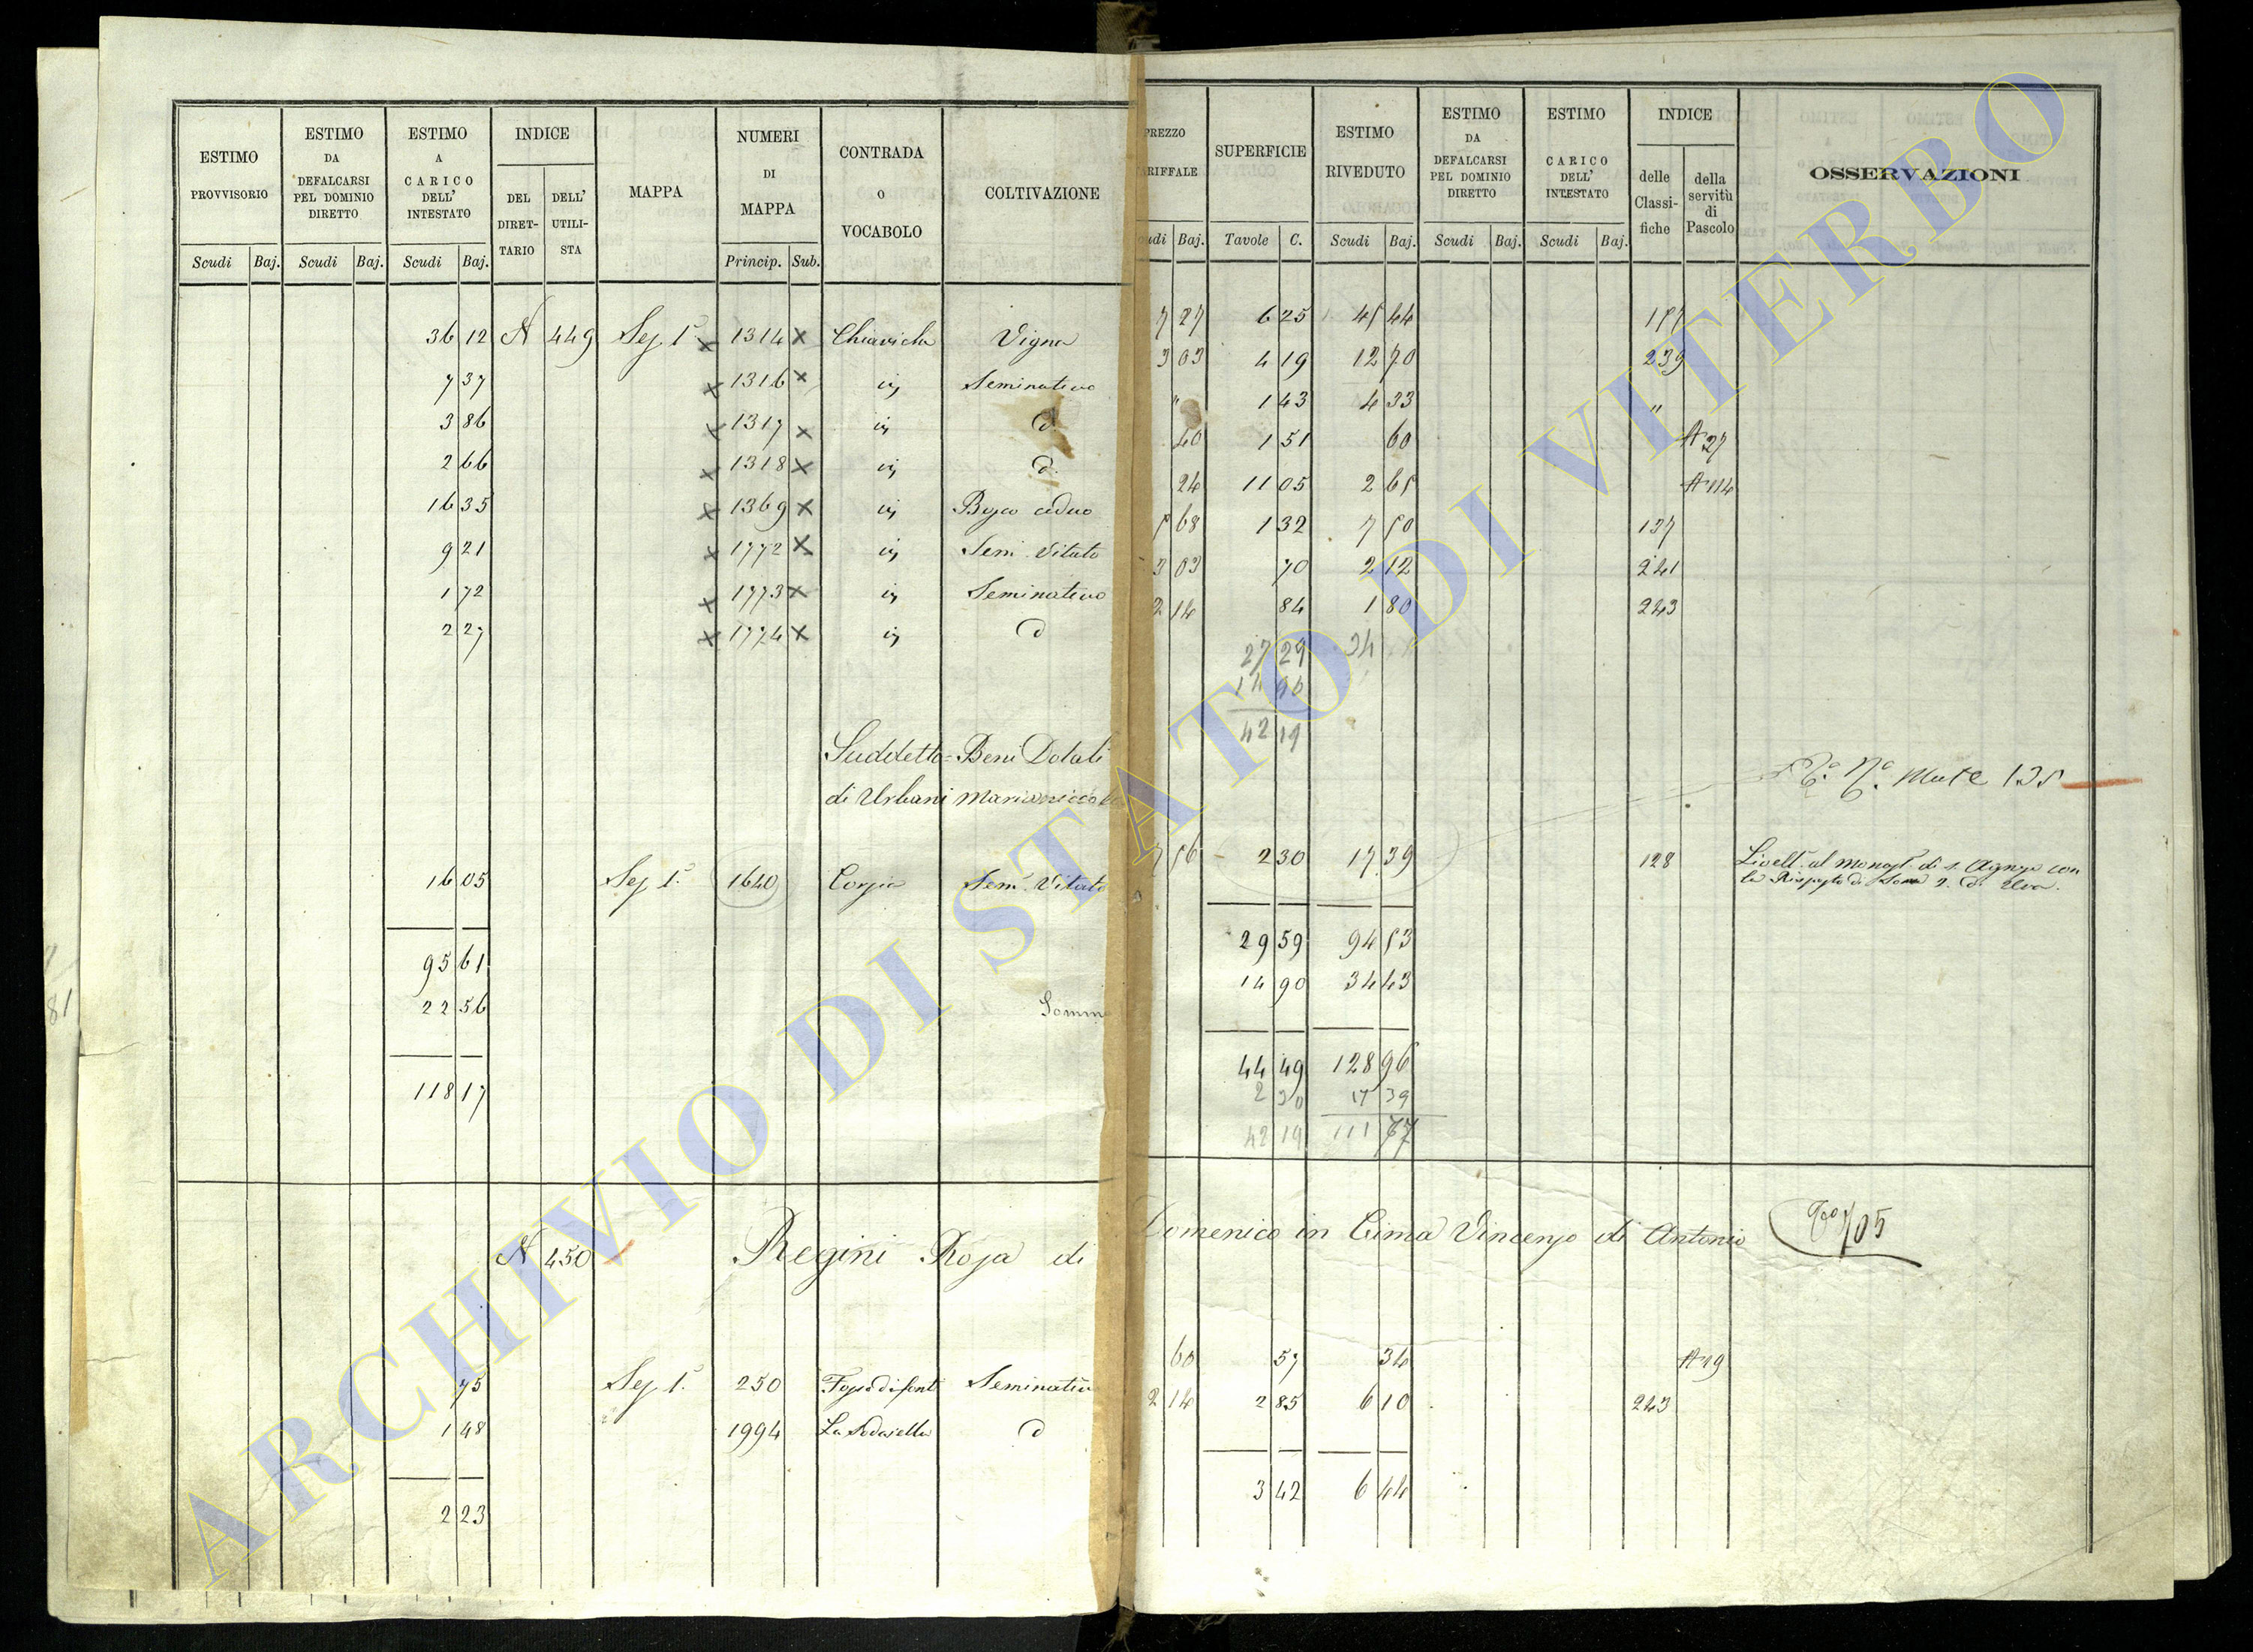 ESTIMO PROVVISORIO Scudi Baj.
ESTIMO DA DEFALCARSI PEL DOMINIO DIRETTO Scudi Baj.
ESTIMO A CARICO DELL' INTESTATO Scudi Baj.
INDICE DEL DIRET-TARIO DELL' UTILI-STA
MAPPA
NUMERI DI MAPPA Princip. Sub.
CONTRADA O VOCABOLO
COLTIVAZIONE
PREZZO TARIFFALE Scudi Baj.
SUPERFICIE Tavole C.
ESTIMO RIVEDUTO Scudi Baj.
ESTIMO DA DEFALCARSI PEL DOMINIO DIRETTO Scudi Baj.
ESTIMO CARICO DELL' INTESTATO Scudi Baj.
INDICE delle Classi-fiche della servitù di Pascolo
OSSERVAZIONI
36 12 N 449 Sez. 1ª x 1314 x Chiaviche Vigna 7 27 6 25 45 44 157
7 37 x 1316 x in Seminativo 3 03 4 19 12 70 239
3 86 x 1317 x in d. " 1 43 4 33 "
2 66 x 1318 x in d. 40 1 51 60 A 27
16 35 x 1369 x in Bosco ceduo 24 11 05 2 65 A 114
9 21 x 1772 x in Sem. Vitato 5 68 1 32 7 50 137
1 72 x 1773 x in Seminativo 3 03 70 2 12 241
2 27 x 1774 x in d 2 14 84 1 80 243
27 29 34
14 90
42 19
Suddetto = Beni Dotali
di Urbani
Mute 135
16 05 Sez. 1ª 1640 Sem. Vitato 7 56 2 30 17 39 128 Livell. al Monast. di S. Agnese con
la Risposta di
29 59 94 53
95 61
14 90 34 43
22 56 Somma
44 49 128 96
118 17
2 30 17 39
42 19 111 57
N 450 Regini Rosa di Domenico in Cima Vincenzo di Antonio 705
75 Sez. 1ª 250 Fosso di fonti Seminativo 60 57 34 A 19
1 48 1994 La Sodarella d 2 14 2 85 6 10 243
3 42 6 44
2 23
81
ARCHIVIO DI STATO DI VITERBO